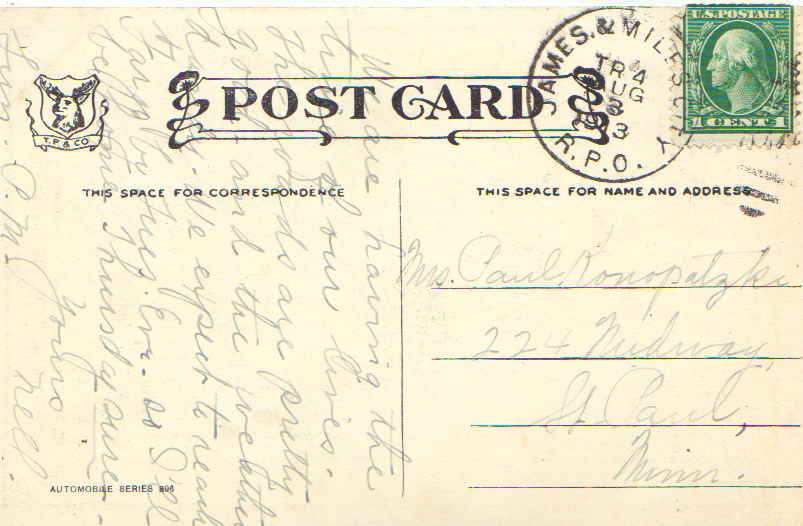 POST CARD
T.P. & CO
THIS SPACE FOR CORRESPONDENCE
THIS SPACE FOR NAME AND ADDRESS
U.S. POSTAGE
1 CENT 1
JAMES. & MILES CITY
TR 4
AUG
3
R.P.O.
We are having the
time of our lives.
The roads are pretty
good and the weather
We expect to reach
Fargo Tues. Ev. so I'll
be home Thursdy sure
Yours
Nell.
Mrs. Paul Konopatzki
224 Midway,
St. Paul,
Minn.
AUTOMOBILE SERIES 806